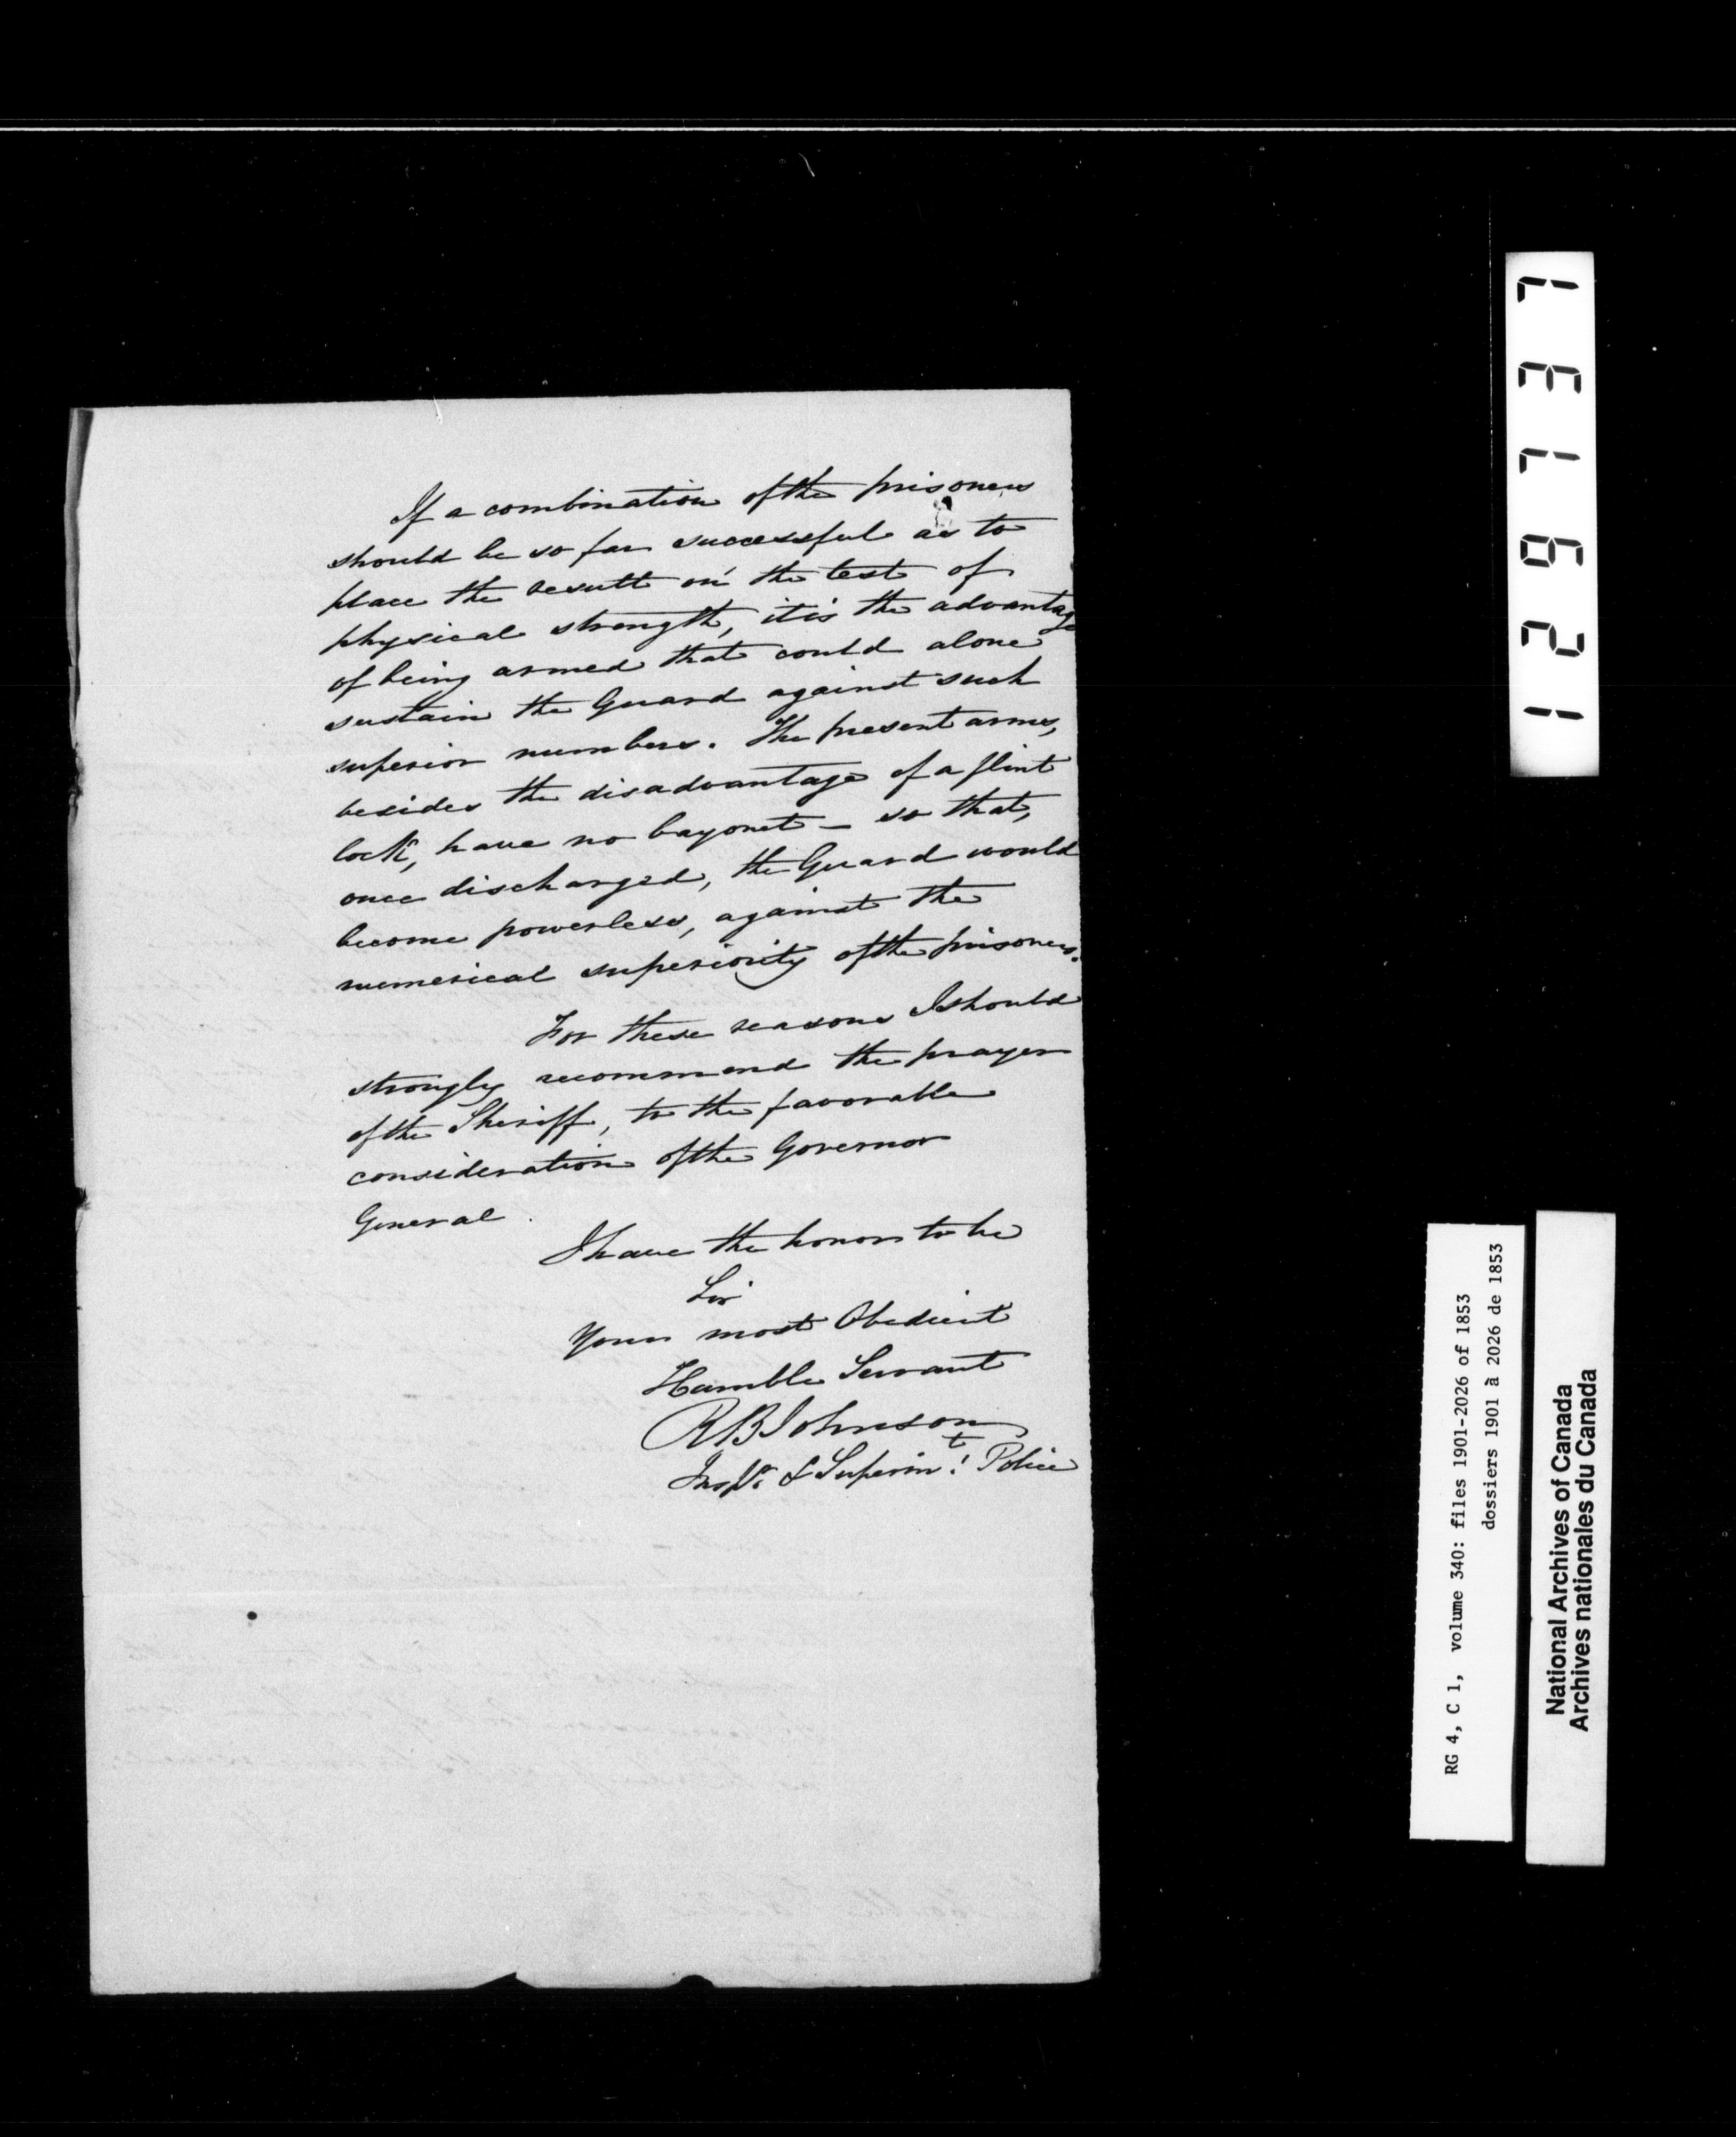 If a combination of the prisoners
should be so far successful as to
place the result on the test of
physical strength, it is the advantage
of being armed that could alone
sustain the Guard against such
superior numbers. The present arms,
besides the disadvantage of a flint
lock, have no bayonet — so that,
once discharged, the Guard would
become powerless, against the
numerical superiority of the prisoners.
For these reasons I should
strongly recommend the prayer
of the Sheriff, to the favorable
consideration of the Governor
General.
I have the honor to be
Sir
Your most Obedient
Humble Servant
R B Johnson
Inspr & Superint Police
129737
RG 4, C 1, volume 340: files 1901-2026 of 1853
dossiers 1901 à 2026 de 1853
National Archives of Canada
Archives nationales du Canada